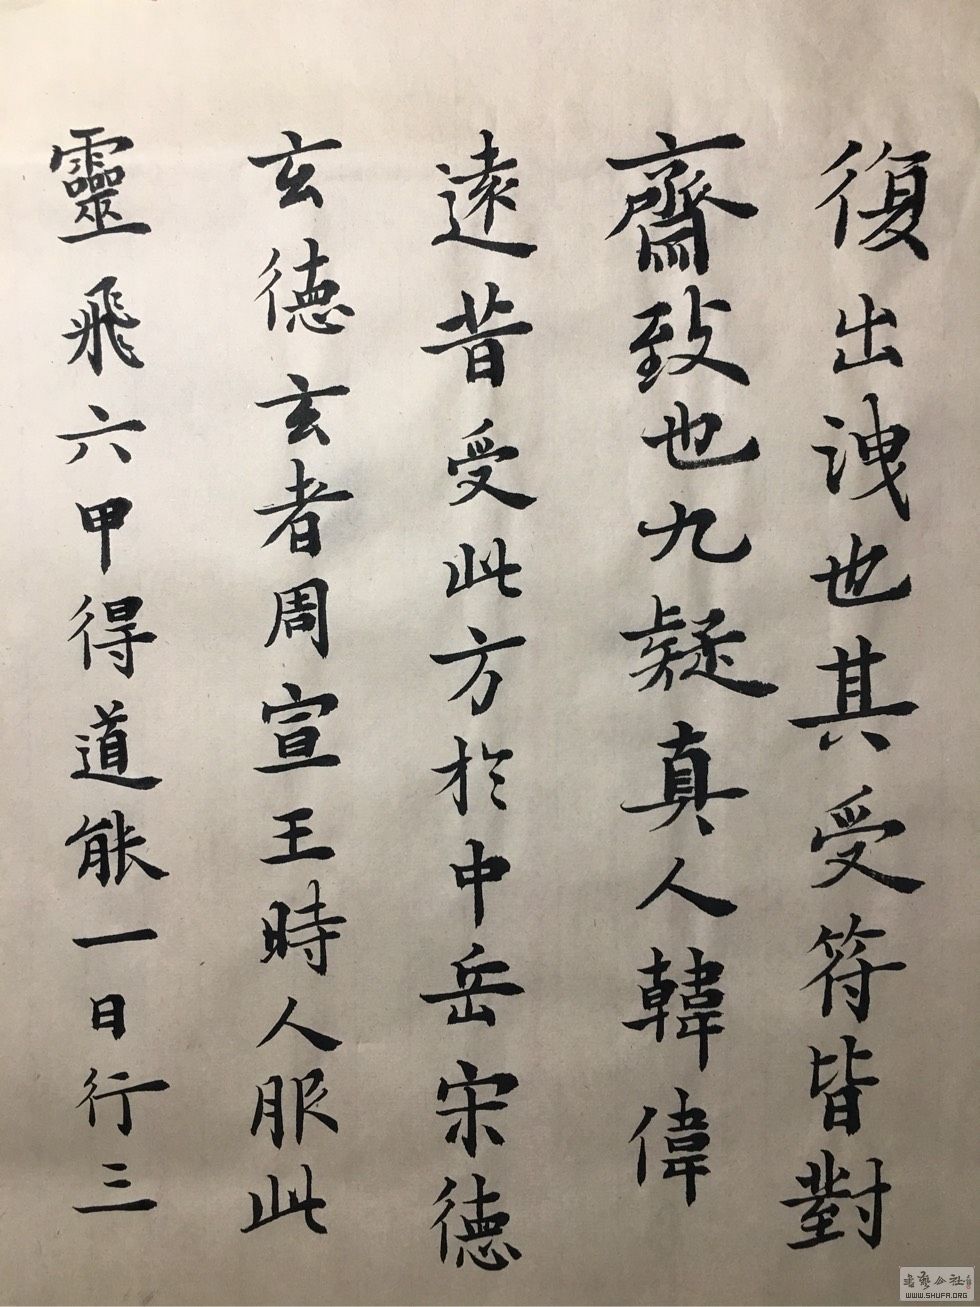 復出洩也其受符皆對
齋致也九疑真人韓偉
遠昔受此方於中岳宋德
玄德玄者周宣王時人服此
靈飛六甲得道能一日行三
書藝公社
WWW.SHUFA.ORG